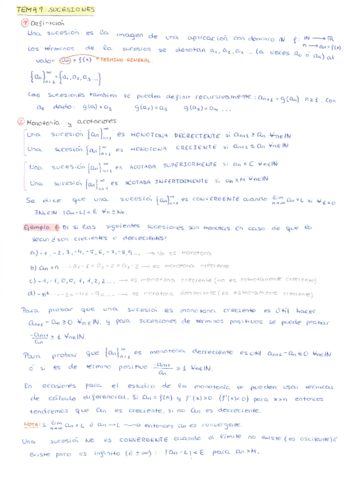 TEMA 1: SUCESIONES
① Definición
Una sucesión es la imagen de una aplicación con dominio ℕ f: ℕ → ℝ
n → an = f(n)
Los términos de la sucesión se denotan a₁, a₂, a₃ ... (a veces a₀ o an) al
valor an = f(x) → TÉRMINO GENERAL
{an}∞n=1 = {a₁, a₂, a₃ ...}
Las sucesiones también se pueden definir recursivamente: an+1 = g(an) n≥1 con
a₁ dado: g(a₁) = a₂ g(a₂) = a₃ g(a₃) = a₄ ...
② Monotonía y acotaciones
Una sucesión {an}∞n=1 es MONÓTONA DECRECIENTE si an+1 ≤ an ∀n∈ℕ
Una sucesión {an}∞n=1 es MONÓTONA CRECIENTE si an+1 ≥ an ∀n∈ℕ
Una sucesión {an}∞n=1 es ACOTADA SUPERIORMENTE si an ≤ L ∀n∈ℕ
Una sucesión {an}∞n=1 es ACOTADA INFERIORMENTE si an ≥ M ∀n∈ℕ
Se dice que una sucesión {an}∞n=1 es CONVERGENTE cuando lim n→∞ an = L si ∀ε>0
∃N∈ℕ |an - L| < ε ∀n ≥ N
Ejemplo 1: Di si las siguientes sucesiones son monótonas en caso de que lo
sean ¿son crecientes o decrecientes?
→ no es monótona
b) an = n → es monótona creciente
→ es monótona creciente (no es estrictamente creciente)
→ es monótona decreciente (es estrictamente creciente)
Para probar que una sucesión es monótona creciente es útil hacer
an+1 - an ≥ 0 ∀n∈ℕ, y para sucesiones de términos positivos se puede probar
an+1/an ≥ 1 ∀n∈ℕ
Para probar que {an}∞n=1 es monótona decreciente es útil an+1 - an ≤ 0 ∀n∈ℕ
o si es de término positivo an+1/an ≤ 1 ∀n∈ℕ.
En ocasiones para el estudio de la monotonía se pueden usar técnicas
de cálculo diferencial. Si an = f(n) y f'(x) > 0 (f'(x) < 0) para
tendremos que an es creciente, si no an es decreciente.
NOTA: si lim n→∞ an = L ó an → L → entonces an es convergente.
Una sucesión NO es CONVERGENTE cuando el límite no existe (es oscilante) o
existe pero es infinito (ó ±∞): |an - L| < ε para an > N.